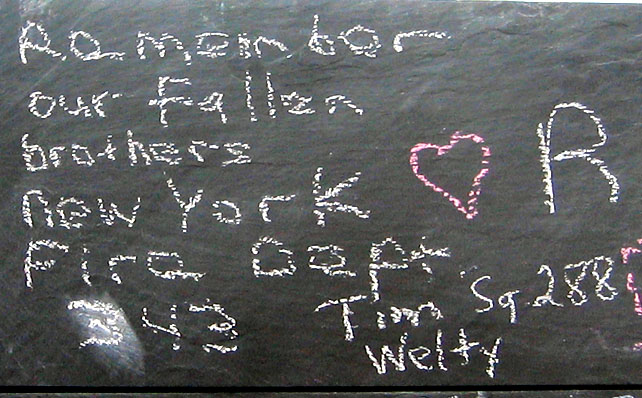 Remeinber
our Fallen
brothers
new York
Fire Dept.
343
Tim Sq 288
Welty
R